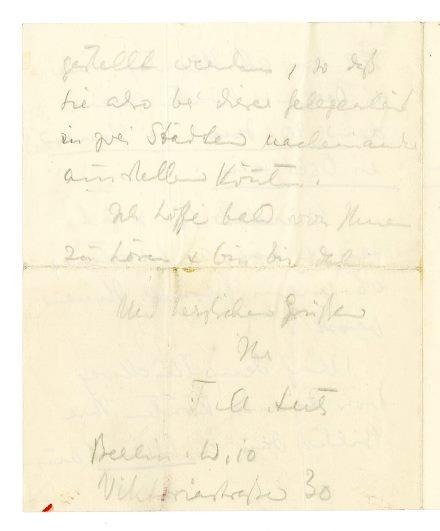 gestellt werden, so daß
Sie also bei dieser Gelegenheit
in zwei Städten nacheinander
ausstellen könnten.
Ich hoffe bald von Ihnen
zu hören & bin bis dahin
Mit herzlichen Grüßen
Ihr
Berlin. W. 10
Viktoriastraße 30